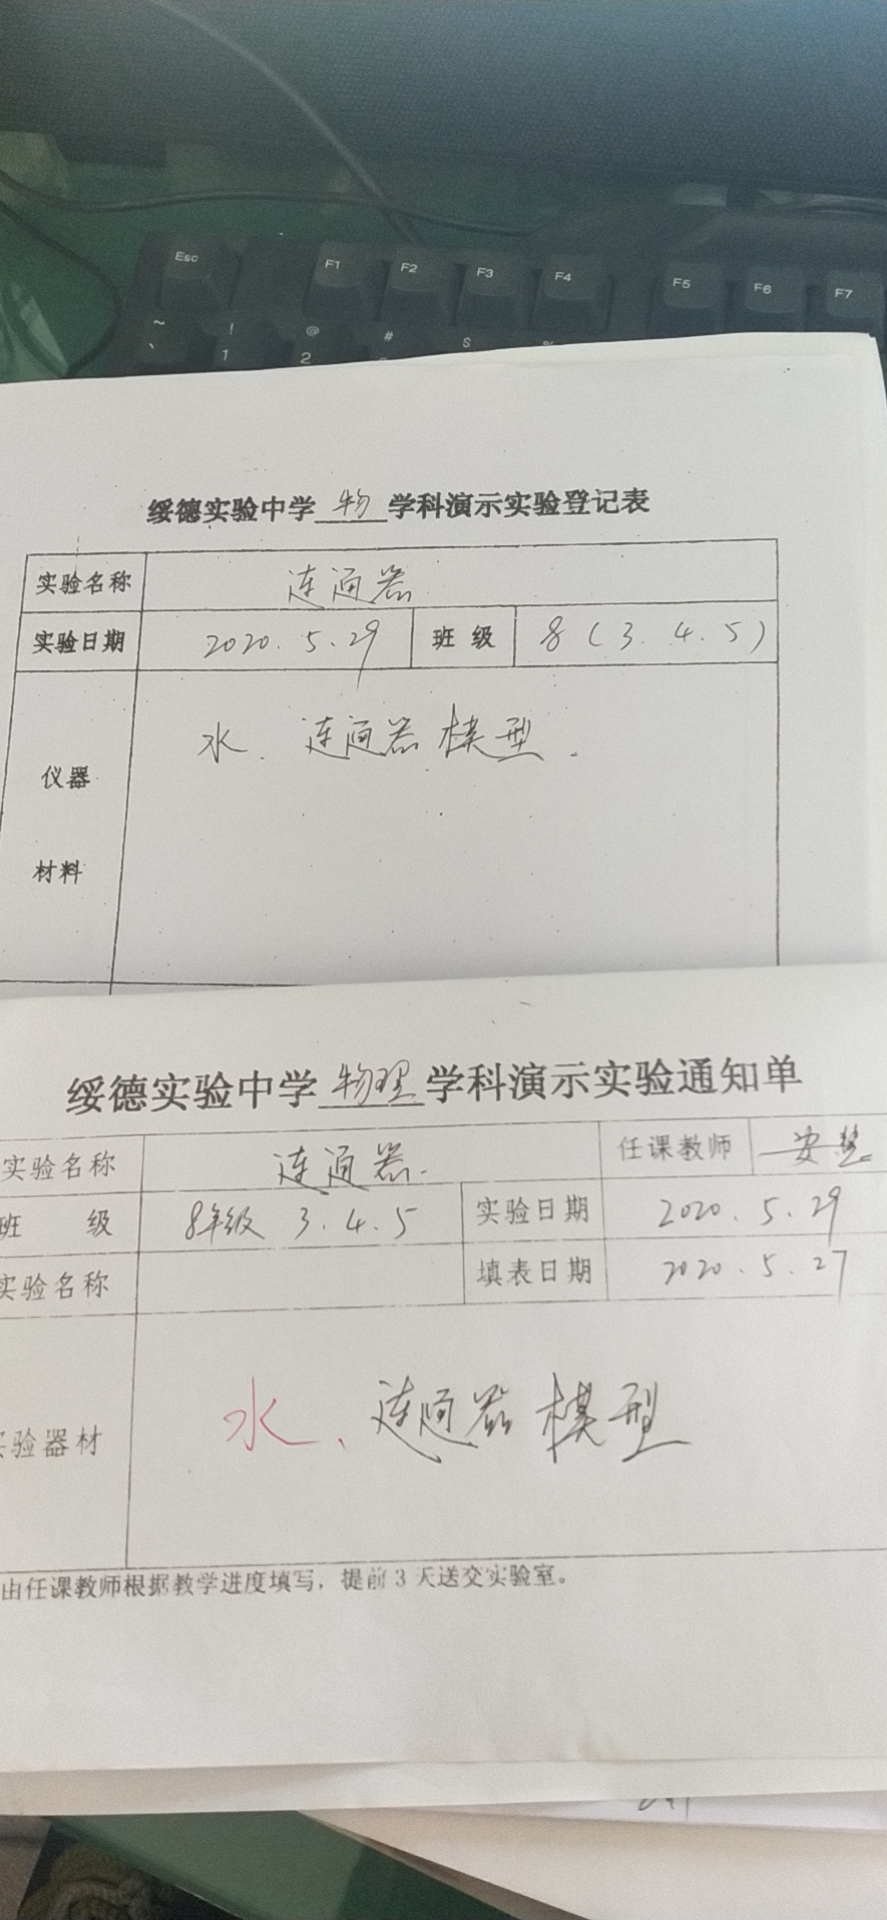 Esc F1 F2 F3 F4 F5 F6 F7
~ ! @ # $ %
` 1 2
绥德实验中学 物 学科演示实验登记表
实验名称 连通器
实验日期 2020.5.29 班 级 8(3.4.5)
水.连通器模型.
仪器
材料
绥德实验中学 物理 学科演示实验通知单
实验名称 连通器. 任课教师 安
班 级 8年级 3.4.5 实验日期 2020.5.29
实验名称 填表日期 2020.5.27
水、连通器模型
实验器材
由任课教师根据教学进度填写，提前3天送交实验室。